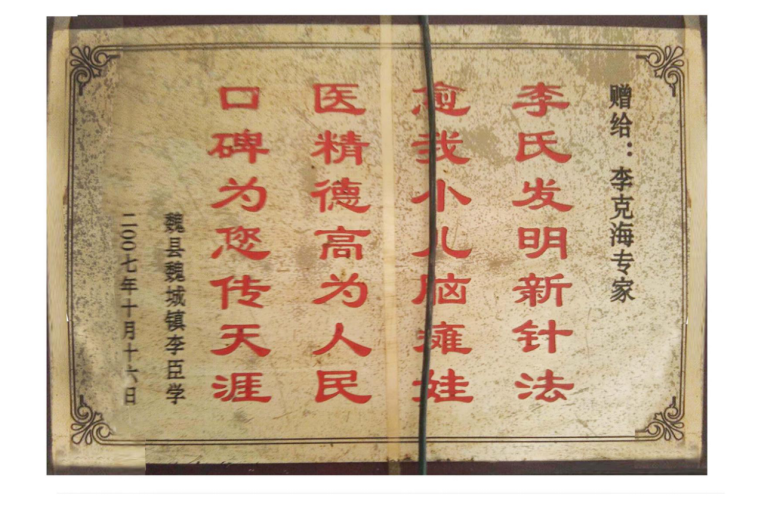 赠给：李克海专家
李氏发明新针法
愈我小儿脑瘫娃
医精德高为人民
口碑为您传天涯
魏县魏城镇李臣学
二〇〇七年十月十六日